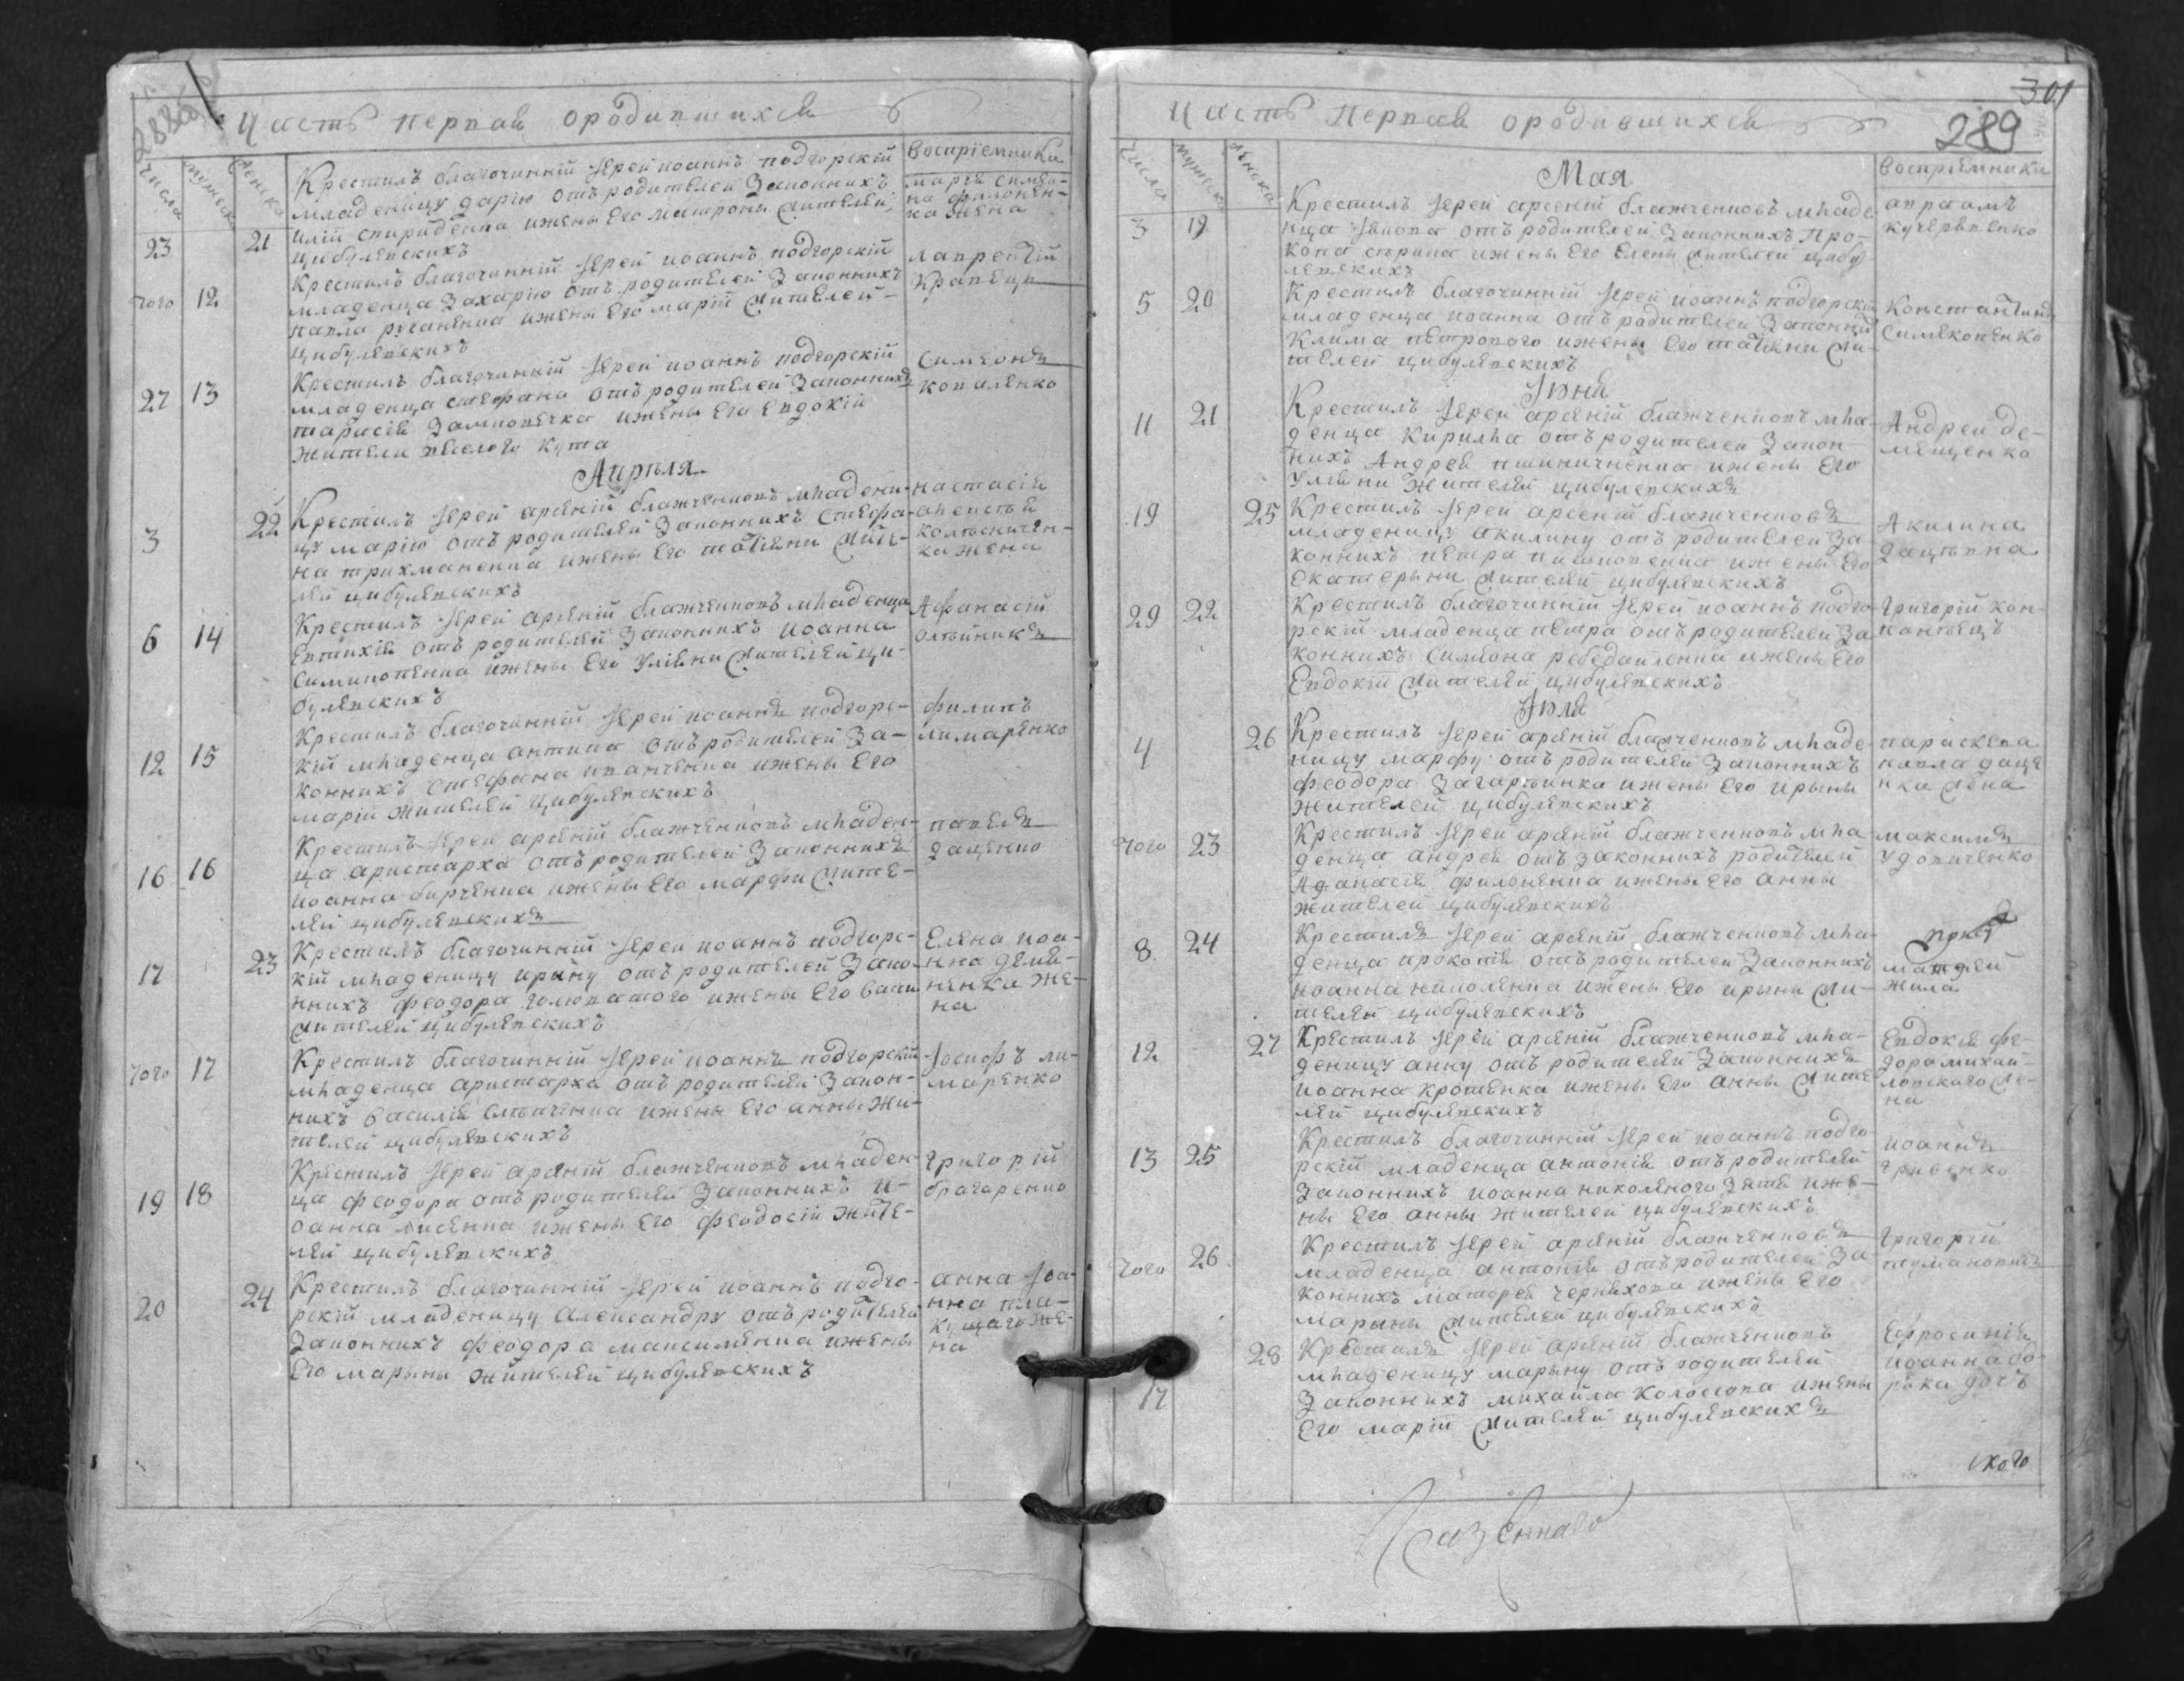 Часть первая ородившихся
числа мужеска женска
Восприемники
Крестилъ благочинній Іерей иоаннъ подгорскій
младеницу дарію отъ родителей Законнихъ
илій спириденка ижены Его Матроны жителей
цибулевскихъ
23 21
мария симео-
на филонен-
ка жена
Крестилъ благочинній Іерей иоаннъ подгорскій
младенца Захарію отъ родителей Законнихъ
павла ижены Его марій жителей
цибулевскихъ
того 12
лаврентій
кравецъ
Крестилъ благочинній Іерей иоаннъ подгорскій
младенца стефана отъ родителей Законнихъ
тарасія ижены Его Евдокій
жители веселого кута
27 13
Симеонъ
коваленко
Априля
Крестилъ Іерей арсеній блажченковъ младени-
цу марію отъ родителей Законнихъ стефа-
на трихманенка ижены Его татіяни жите-
лей цибулевскихъ
3 22
настасія
алексея
колесничен-
ка жена
Крестилъ Іерей арсеній блажченковъ младенца
Евтихія отъ родителей Законнихъ иоанна
ижены Его Уліяни жителей ци-
булевскихъ
6 14
Афанасій
олейникъ
Крестилъ благочинній Іерей иоаннъ подгорс-
кій младенца антипа отъ родителей За-
коннихъ стефана иванченка ижены Его
марій жителей цибулевскихъ
12 15
филипъ
лимаренко
Крестилъ Іерей арсеній блажченковъ младен-
ца аристарха отъ родителей Законнихъ
иоанна бирченка ижены Его марфи жите-
лей цибулевскихъ
16 16
павелъ
даценко
Крестилъ благочинній Іерей иоаннъ подгорс-
кій младеницу ирину отъ родителей Зако-
ннихъ феодора голюватого ижены Его
жителей цибулевскихъ
17 23
Елена иоа-
нна деми-
ненка же-
на
Крестилъ благочинній Іерей иоаннъ подгорскій
младенца аристарха отъ родителей Закон-
нихъ василія ижены Его анны жи-
телей цибулевскихъ
того 17
Іосифъ ли-
маренко
Крестилъ Іерей арсеній блажченковъ младен-
ца феодора отъ родителей Законнихъ и-
оанна лисенка ижены Его феодосій жите-
лей цибулевскихъ
19 18
григорій
брагаренко
Крестилъ благочинній Іерей иоаннъ подго-
рскій младеницу Александру отъ родителей
Законнихъ феодора максименка ижены
Его марыны жителей цибулевскихъ
20 24
анна Іоа-
нна пла-
кущаго же-
на
301
289
Часть Первая ородившихся
числа мужеска женска
восприемники
Мая
Крестилъ Іерей арсеній блажченковъ младе-
нца Іякова отъ родителей Законнихъ Про-
копа ижены Его Елены жителей цибу-
левскихъ
3 19
авраамъ
кучерявенко
Крестилъ благочинній Іерей иоаннъ подгорскій
младенца иоанна отъ родителей Законнихъ
Клима ижены Его татіяни жи-
телей цибулевскихъ
5 20
Константинъ
Симаковенко
Іюня
Крестилъ Іерей арсеній блажченковъ мла-
денца Кирилла отъ родителей Закон-
нихъ Андрея пшиниченка ижены Его
Уліяни жителей цибулевскихъ
11 21
Андрей де-
мященко
Крестилъ Іерей арсеній блажченковъ
младеницу акилину отъ родителей За-
коннихъ петра ижены Его
Екатерыни жителей цибулевскихъ
19 25
Акилина
дацькова
Крестилъ благочинній Іерей иоаннъ подго-
рскій младенца петра отъ родителей За
коннихъ симеона ижены Его
Евдокій жителей цибулевскихъ
29 22
Григорій кон-
Іюля
Крестилъ Іерей арсеній блажченковъ младе-
ницу марфу отъ родителей Законнихъ
феодора Загартинка ижены Его ирыны
жителей цибулевскихъ
4 26
параскева
павла даце
нка жена
Крестилъ Іерей арсеній блажченковъ мла
денца андрея отъ законнихъ родителей
Афанасія филоненка ижены Его анны
жителей цибулевскихъ
того 23
максимъ
удовиченко
Крестилъ Іерей арсеній блажченковъ мла-
денца прокопія отъ родителей Законнихъ
иоанна ижены Его ирыни жи-
телей цибулевскихъ
8 24
матфей
жила
Крестилъ Іерей арсеній блажченковъ мла-
деницу анну отъ родителей Законнихъ
иоанна кротенка ижены Его анны жите
лей цибулевскихъ
12 27
Евдокія фе-
дора михай-
ловского же-
на
Крестилъ благочинній Іерей иоаннъ подго-
рскій младенца антонія отъ родителей
Законнихъ иоанна николеного зятя иже-
ны Его анны жителей цибулевскихъ
13 25
иоаннъ
гриценко
Крестилъ Іерей арсеній блажченковъ
младенца антонія отъ родителей За
коннихъ матфея черняхова ижены Его
марыны жителей цибулевскихъ
того 26
григорій
тумановичъ
Крестилъ Іерей арсеній блажченковъ
младеницу марыну отъ родителей
Законнихъ михайла Колосова ижены
Его марій жителей цибулевскихъ
17 28
Ефросинія
иоанна
дочъ